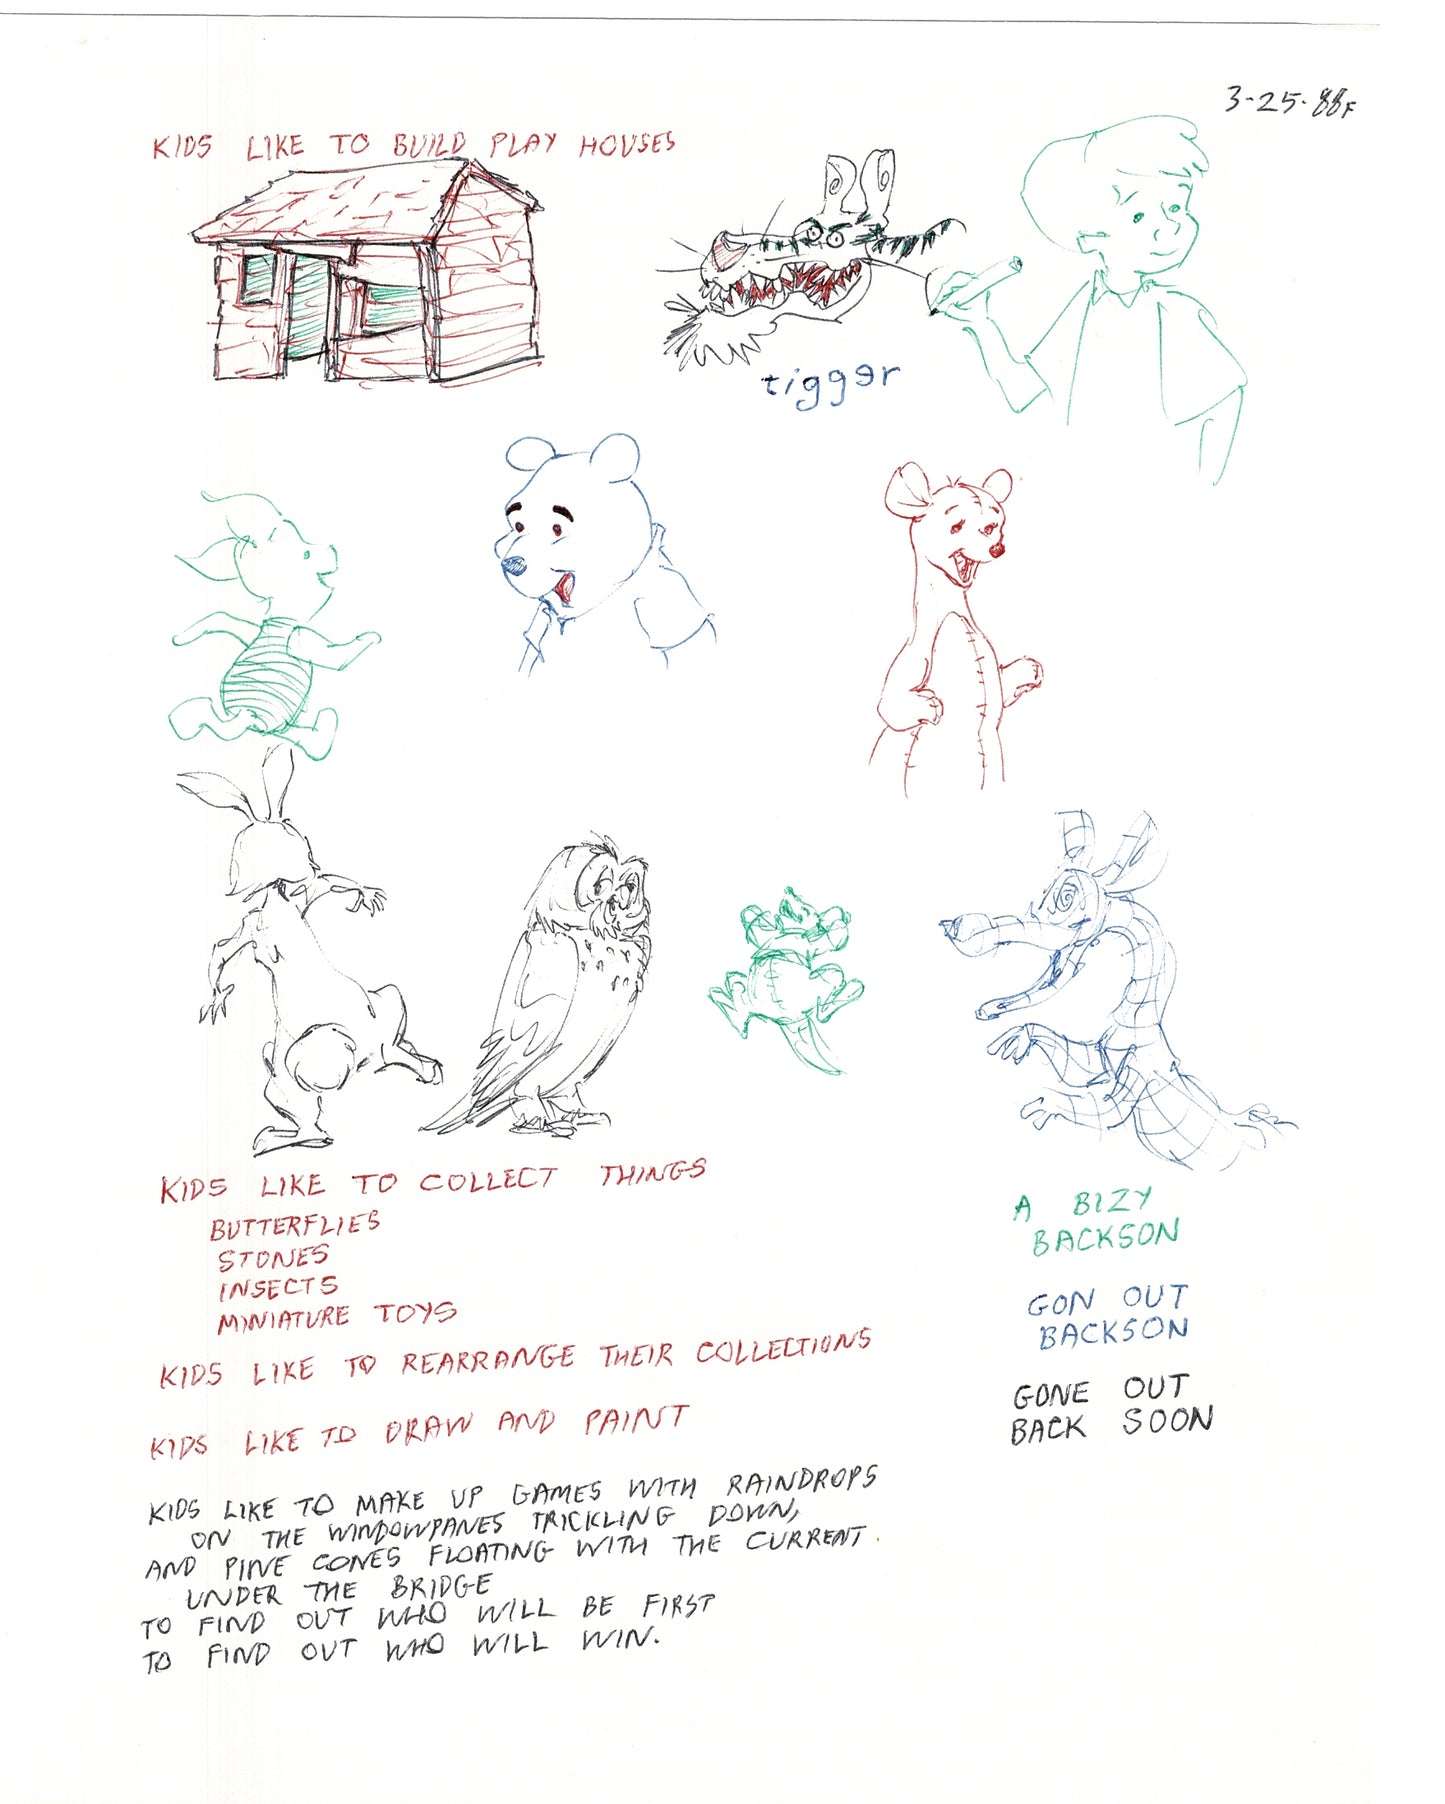 3-25-88F
KIDS LIKE TO BUILD PLAY HOUSES
tigger
KIDS LIKE TO COLLECT THINGS
BUTTERFLIES
STONES
INSECTS
MINIATURE TOYS
KIDS LIKE TO REARRANGE THEIR COLLECTIONS
KIDS LIKE TO DRAW AND PAINT
KIDS LIKE TO MAKE UP GAMES WITH RAINDROPS
ON THE WINDOWPANES TRICKLING DOWN,
AND PINE CONES FLOATING WITH THE CURRENT
UNDER THE BRIDGE
TO FIND OUT WHO WILL BE FIRST
TO FIND OUT WHO WILL WIN.
A BIZY
BACKSON
GON OUT
BACKSON
GONE OUT
BACK SOON